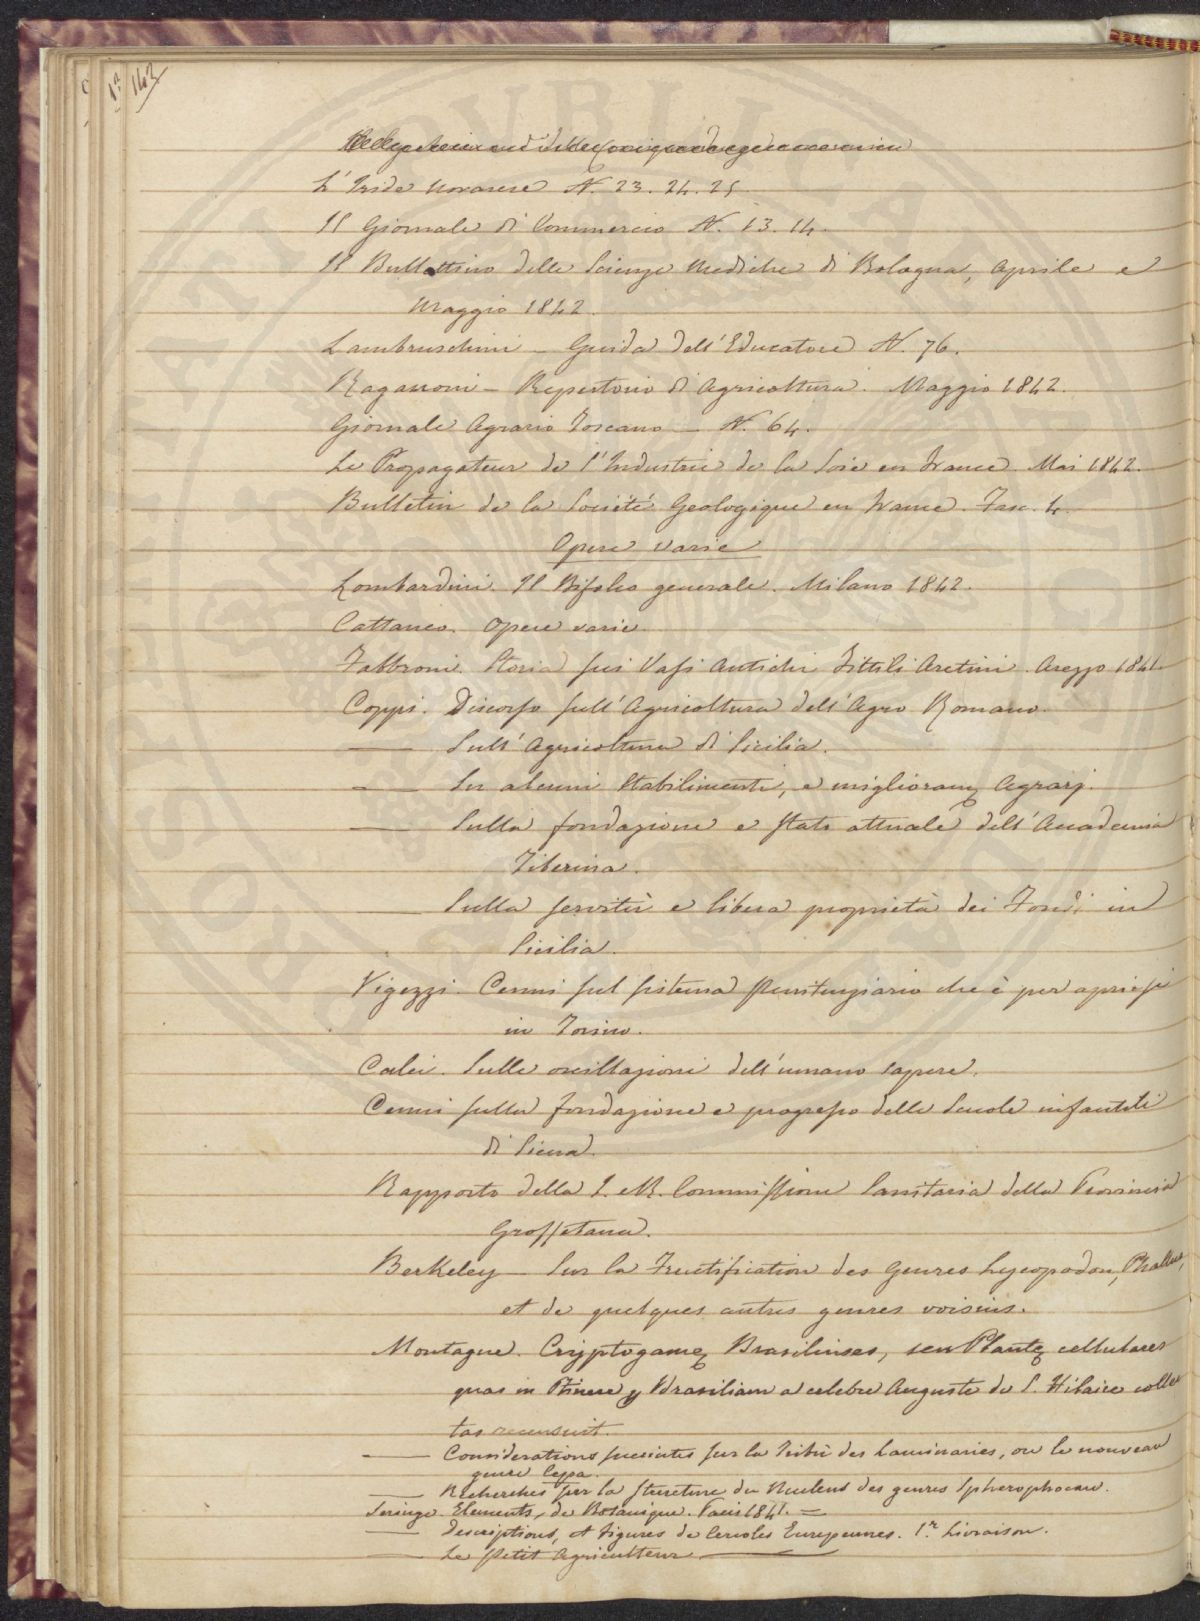 1.ª 142
L'Iride Novarese N. 23. 24. 25
Il Giornale di Commercio N. 13. 14.
Il Bullettino delle Scienze Mediche di Bologna, Aprile e
Maggio 1842.
Lambruschini – Guida dell'Educatore N. 76.
Ragazzoni – Repertorio di Agricoltura. Maggio 1842.
Giornale Agrario Toscano – N. 64.
Le Propagateur de l'Industrie de la Soie en France. Mai 1842.
Bulletin de la Société Geologique en France. Fasc. 4.
Opere varie
Lombardini. Il Bifolco generale. Milano 1842.
Cattaneo. Opere varie
Fabbroni. Storia sui Vasi Antichi Fittili Aretini. Arezzo 1841.
Coppi. Discorso sull'Agricoltura dell'Agro Romano.
— Sull'Agricoltura di Sicilia.
— Su alcuni Stabilimenti, e miglioram. Agrarj.
— Sulla fondazione e stato attuale dell'Accademia
Tiberina.
— Sulla servitù e libera proprietà dei Fondi in
Sicilia.
Vigezzi. Cenni sul sistema Penitenziario che è per aprirsi
in Torino.
Calei. Sulle oscillazioni dell'umano sapere.
Cenni sulla fondazione e progresso delle Scuole infantili
di Siena.
Rapporto della I. e R. Commissione Sanitaria della Provincia
Grossetana.
Berkeley – Sur la Fructification des Genres Lycopodon, Phallus,
et de quelques autres genres voisins.
Montagne. Cryptogamę Brasilienses, seu Plantę cellulares
quas in Itinere p Brasiliam a celebre Auguste de S. Hilaire collec
tas recensuit.
— Considerations succintes sur la Tribù des Laminaries, ou le nouveau
genre Cepa.
— Recherches sur la structure du Nucleus des genres Spherophoron.
Seringe. Elements, de Botanique. Paris 1841. =
— Descriptions, et Figures de Cereales Européennes. 1.r Livraison.
— Le Petit Agriculteur —